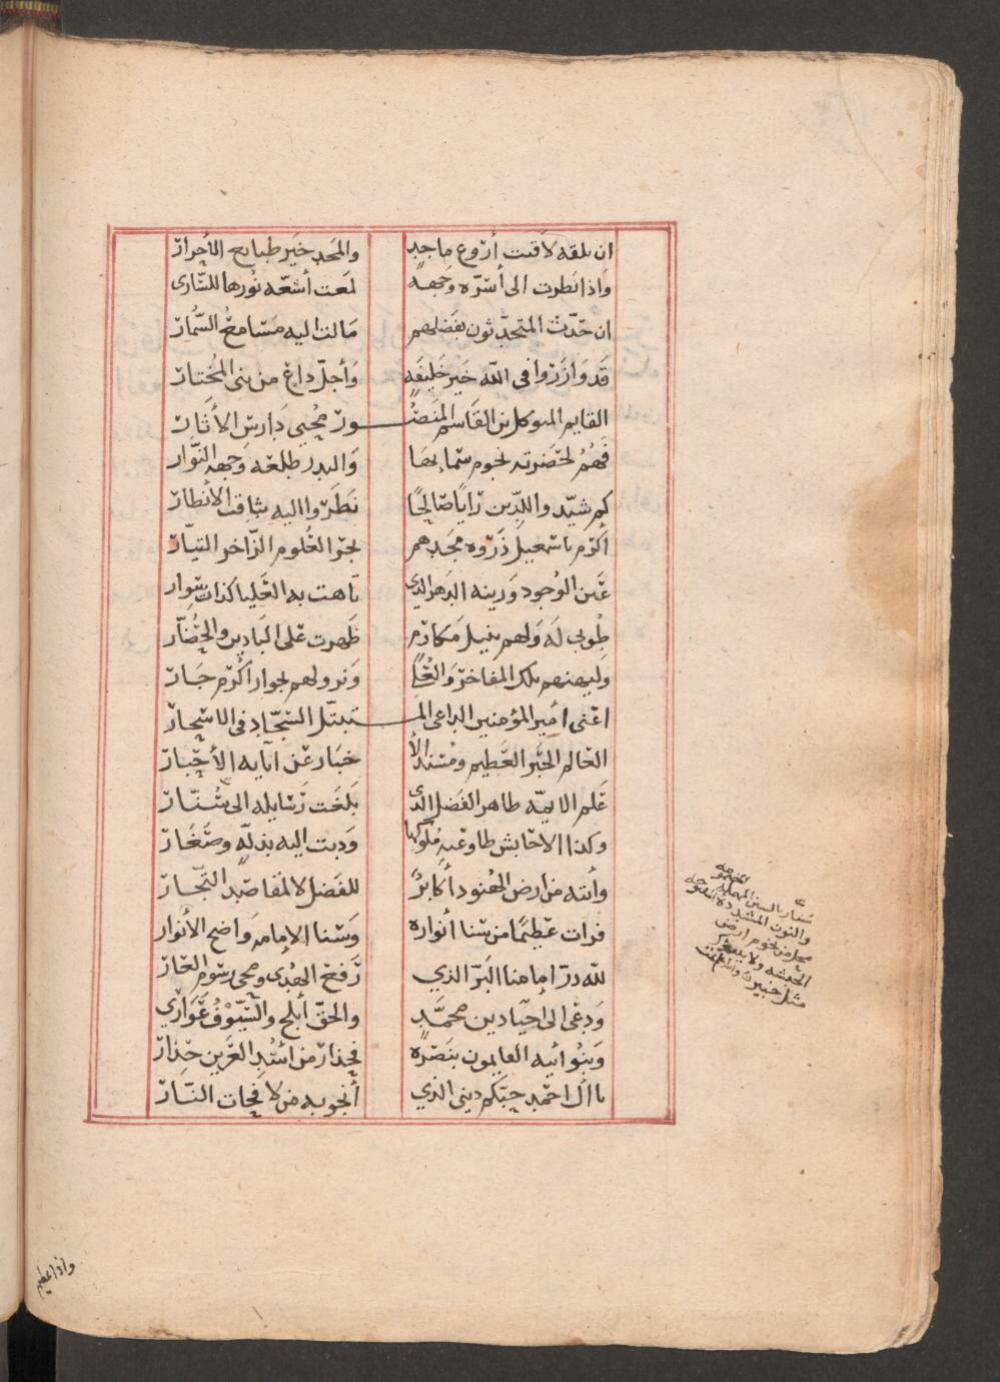 ان تلقه لاقيت أروع ماجد والمجد خير طبايع الأحرار
واذا نظرت الى أسرّة وجهه لمعت أشعّة نورها للسّارى
ان حدّث المتحدّثون بفضلهم مالت اليه مسامع السُّمار
قد وازروا فى الله خير خليفه وأجلّ داع من بنى المختار
القايم المتوكل بن القاسم المنصُـــور محيي دارس الأثار
فهمُ لحضرته نجوم سمايها والبدر طلعة وجهه النّوار
كم شيّدوا للدين رايًا صالحًا نظروا اليه بثاقب الأنظار
اكرم باسمعيل ذروه مجدهم بحر العُلوم الزّاخر التيّار
عين الوجود وزينه الدهر الذى تاهت به العليا كذات سِوار
طُوبى له ولهم بنيل مكارم ظهرت على البادين والحُضّار
وليهنهم تلك المفاخر والعُلا ونزولهم بجوار أكرم جار
اعنى أمير المؤمنين الداعى المـــتبتّل السجّاد فى الاسحار
العالم الحَبر العظيم ومُسند الأ خبار عن آبايه الأحبار
علم الايمّه طاهر الفضل الذى بلغت رسايله الى سُنّار
وكذا الاحابش طاوعته مُلوكها ودنت اليه بذلّه وصَغار
وأتته من ارض الهنود أكابرٌ للفضل لا لمقاصد التجّار
فرات عظيمًا من سنا أنواره وسنا الإمامه واضح الأنوار
لله درّ إمامنا البَرّ الذي رفع الهُدى ومحى رسوم العار
ودعى الى احيا دين محمّد والحق أبلج والسّيوف عَوَارِي
وبنُوا أبيه القايمون بنصره فحذار من اسُد العرين حِذار
يا آل احمد حبّكم ديني الذي أنجو به من لافحات النّار
سنار بالسين المهمله المضمومه
والنون المشدده المفتوحه
محل من تخوم ارض
الحبشه
واذا عظيم